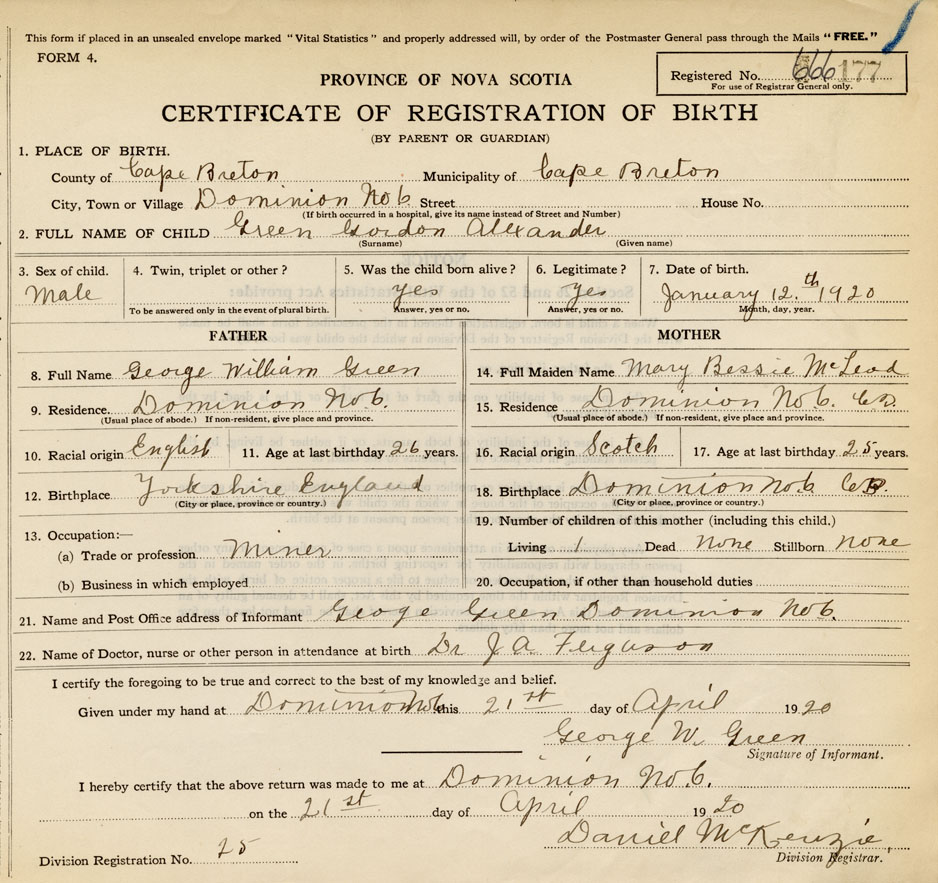 This form if placed in an unsealed envelope marked "Vital Statistics" and properly addressed will, by order of the Postmaster General pass through the Mails "FREE."
FORM 4.
Registered No. 666 177
For use of Registrar General only.
PROVINCE OF NOVA SCOTIA
CERTIFICATE OF REGISTRATION OF BIRTH
(BY PARENT OR GUARDIAN)
1. PLACE OF BIRTH.
County of Cape Breton Municipality of Cape Breton
City, Town or Village Dominion No 6 Street House No.
(If birth occurred in a hospital, give its name instead of Street and Number)
2. FULL NAME OF CHILD Green Gordon Alexander
(Surname) (Given name)
3. Sex of child. 4. Twin, triplet or other? 5. Was the child born alive? 6. Legitimate? 7. Date of birth.
Male yes yes January 12.th 1920
To be answered only in the event of plural birth. Answer, yes or no. Answer, yes or no. Month, day, year.
FATHER MOTHER
8. Full Name George William Green 14. Full Maiden Name Mary Bessie McLeod
9. Residence. Dominion No 6. 15. Residence Dominion No 6. C.B.
(Usual place of abode.) If non-resident, give place and province. (Usual place of abode.) If non-resident, give place and province.
10. Racial origin English 11. Age at last birthday 26 years. 16. Racial origin Scotch 17. Age at last birthday 25 years.
12. Birthplace Yorkshire England 18. Birthplace Dominion No 6 C.B.
(City or place, province or country.) (City or place, province or country.)
13. Occupation:— 19. Number of children of this mother (including this child.)
(a) Trade or profession Miner Living 1 Dead None Stillborn none
(b) Business in which employed 20. Occupation, if other than household duties
21. Name and Post Office address of Informant Geoge Green Dominion No 6.
22. Name of Doctor, nurse or other person in attendance at birth Dr J A Ferguson
I certify the foregoing to be true and correct to the best of my knowledge and belief.
Given under my hand at Dominion No 6 this 21st day of April 1920
George W. Green
Signature of Informant.
I hereby certify that the above return was made to me at Dominion No 6.
on the 21st day of April 1920
Daniel McKenzie,
Division Registration No. 25 Division Registrar.